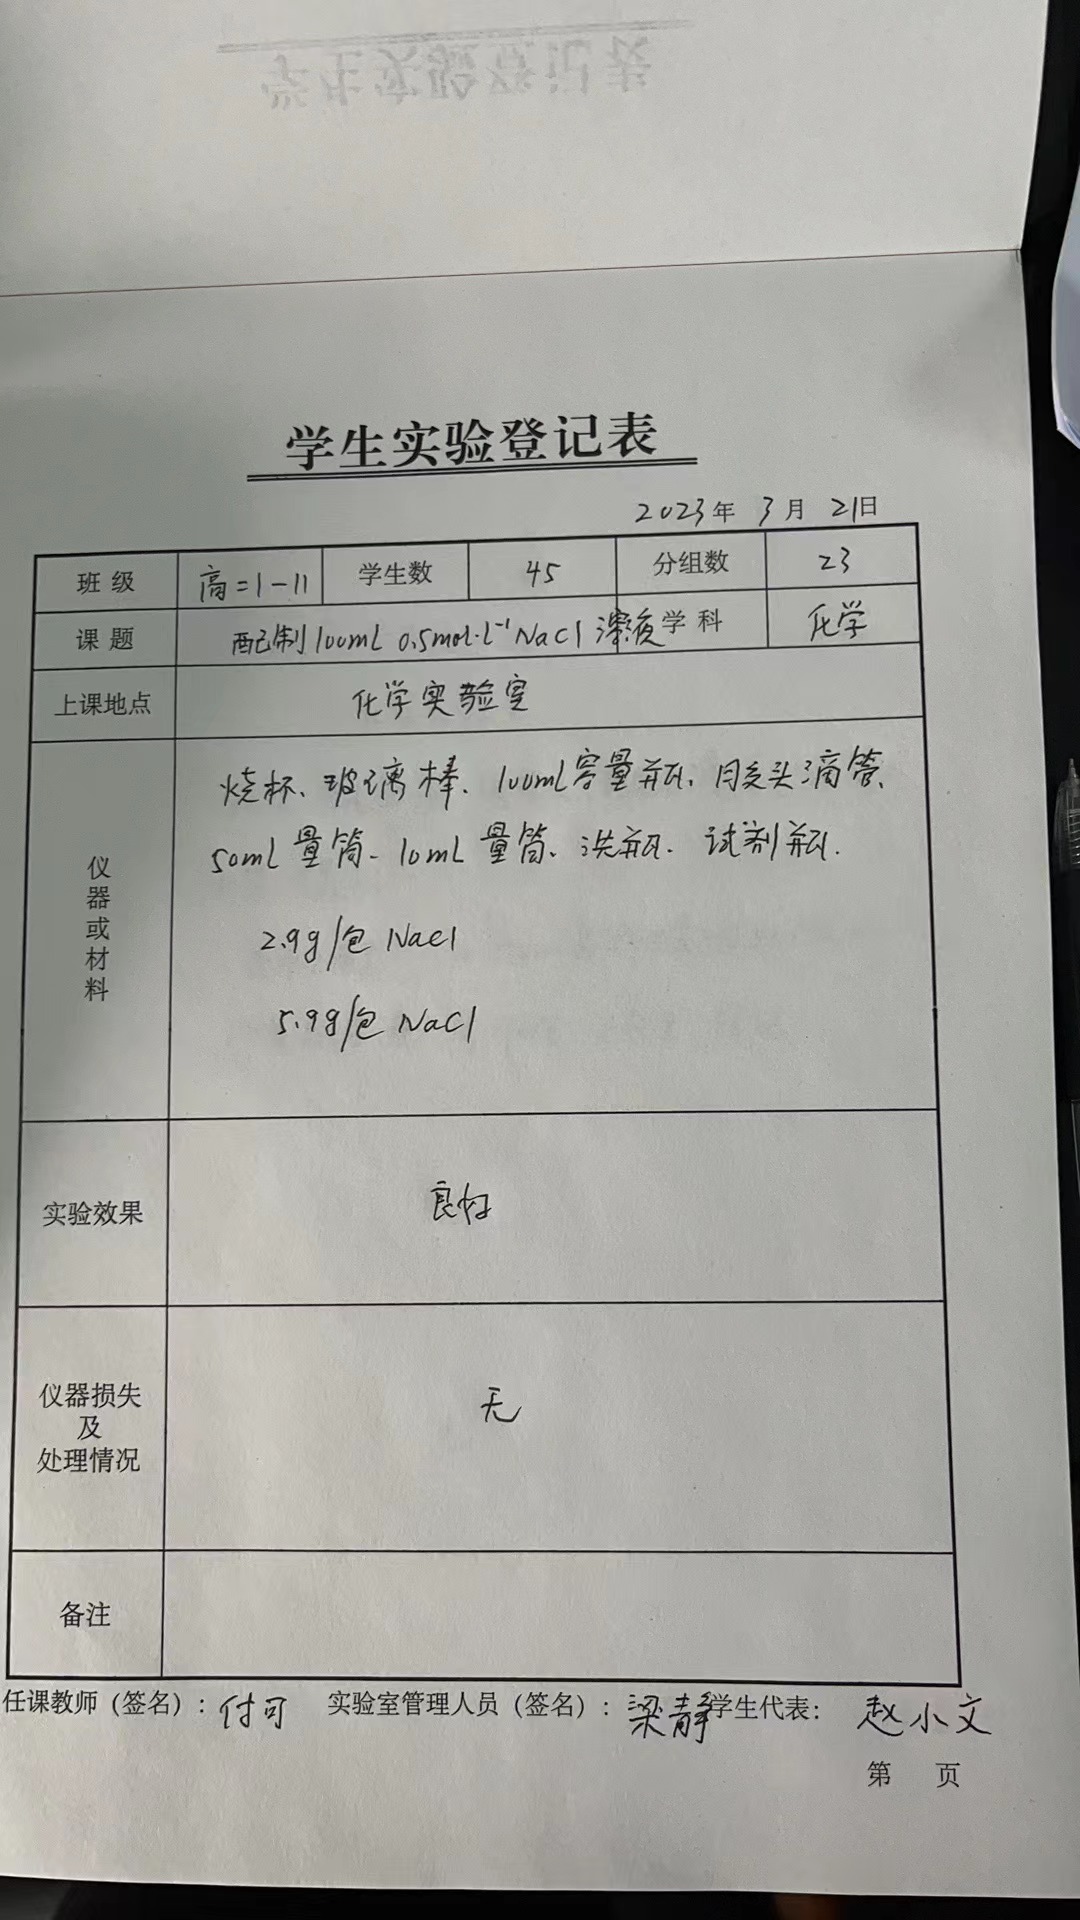 学生实验登记表
2023年 3月 21日
班级 高二1-11 学生数 45 分组数 23
课题 配制100mL 0.5mol·L⁻¹NaCl溶液 学科 化学
上课地点 化学实验室
仪器或材料
烧杯、玻璃棒、100mL容量瓶、胶头滴管、
50mL量筒、10mL量筒、洗瓶、试剂瓶.
2.9g/包 NaCl
5.9g/包 NaCl
实验效果 良好
仪器损失
及
处理情况
无
备注
任课教师（签名）：付可 实验室管理人员（签名）：梁静 学生代表：赵小文
第 页